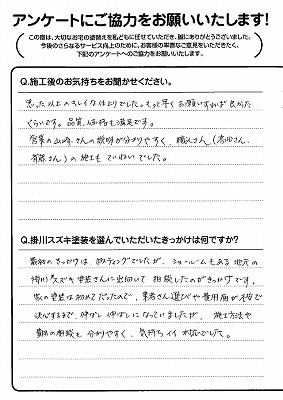 アンケートにご協力をお願いいたします!
この度は、大切なお宅の塗替えを私どもに任せていただき、誠にありがとうございました。
今後のさらなるサービス向上のために、お客様の率直なご意見をいただきたく、
下記のアンケートへのご協力をお願いいたします。
Q.施工後のお気持ちをお聞かせください。
思った以上のキレイな仕上りでした。もっと早くお願いすれば良かった
くらいです。品質、価格も満足です。
営業の山崎さんの説明が分かりやすく、職人さん(
斉藤さん)の施工もていねいでした。
Q.掛川スズキ塗装を選んでいただいたきっかけは何ですか?
最初のきっかけは、ポスティングでしたが、ショールームもある地元の
掛川スズキ塗装さんに出向いて相談したのがきっかけです。
家の塗装は初めてだったので、業者さん選びや費用面が不安で
決心するまで、伸ばし伸ばしになっていましたが、施工方法や
費用の相談も分かりやすく、気持ちイイ対応でした。